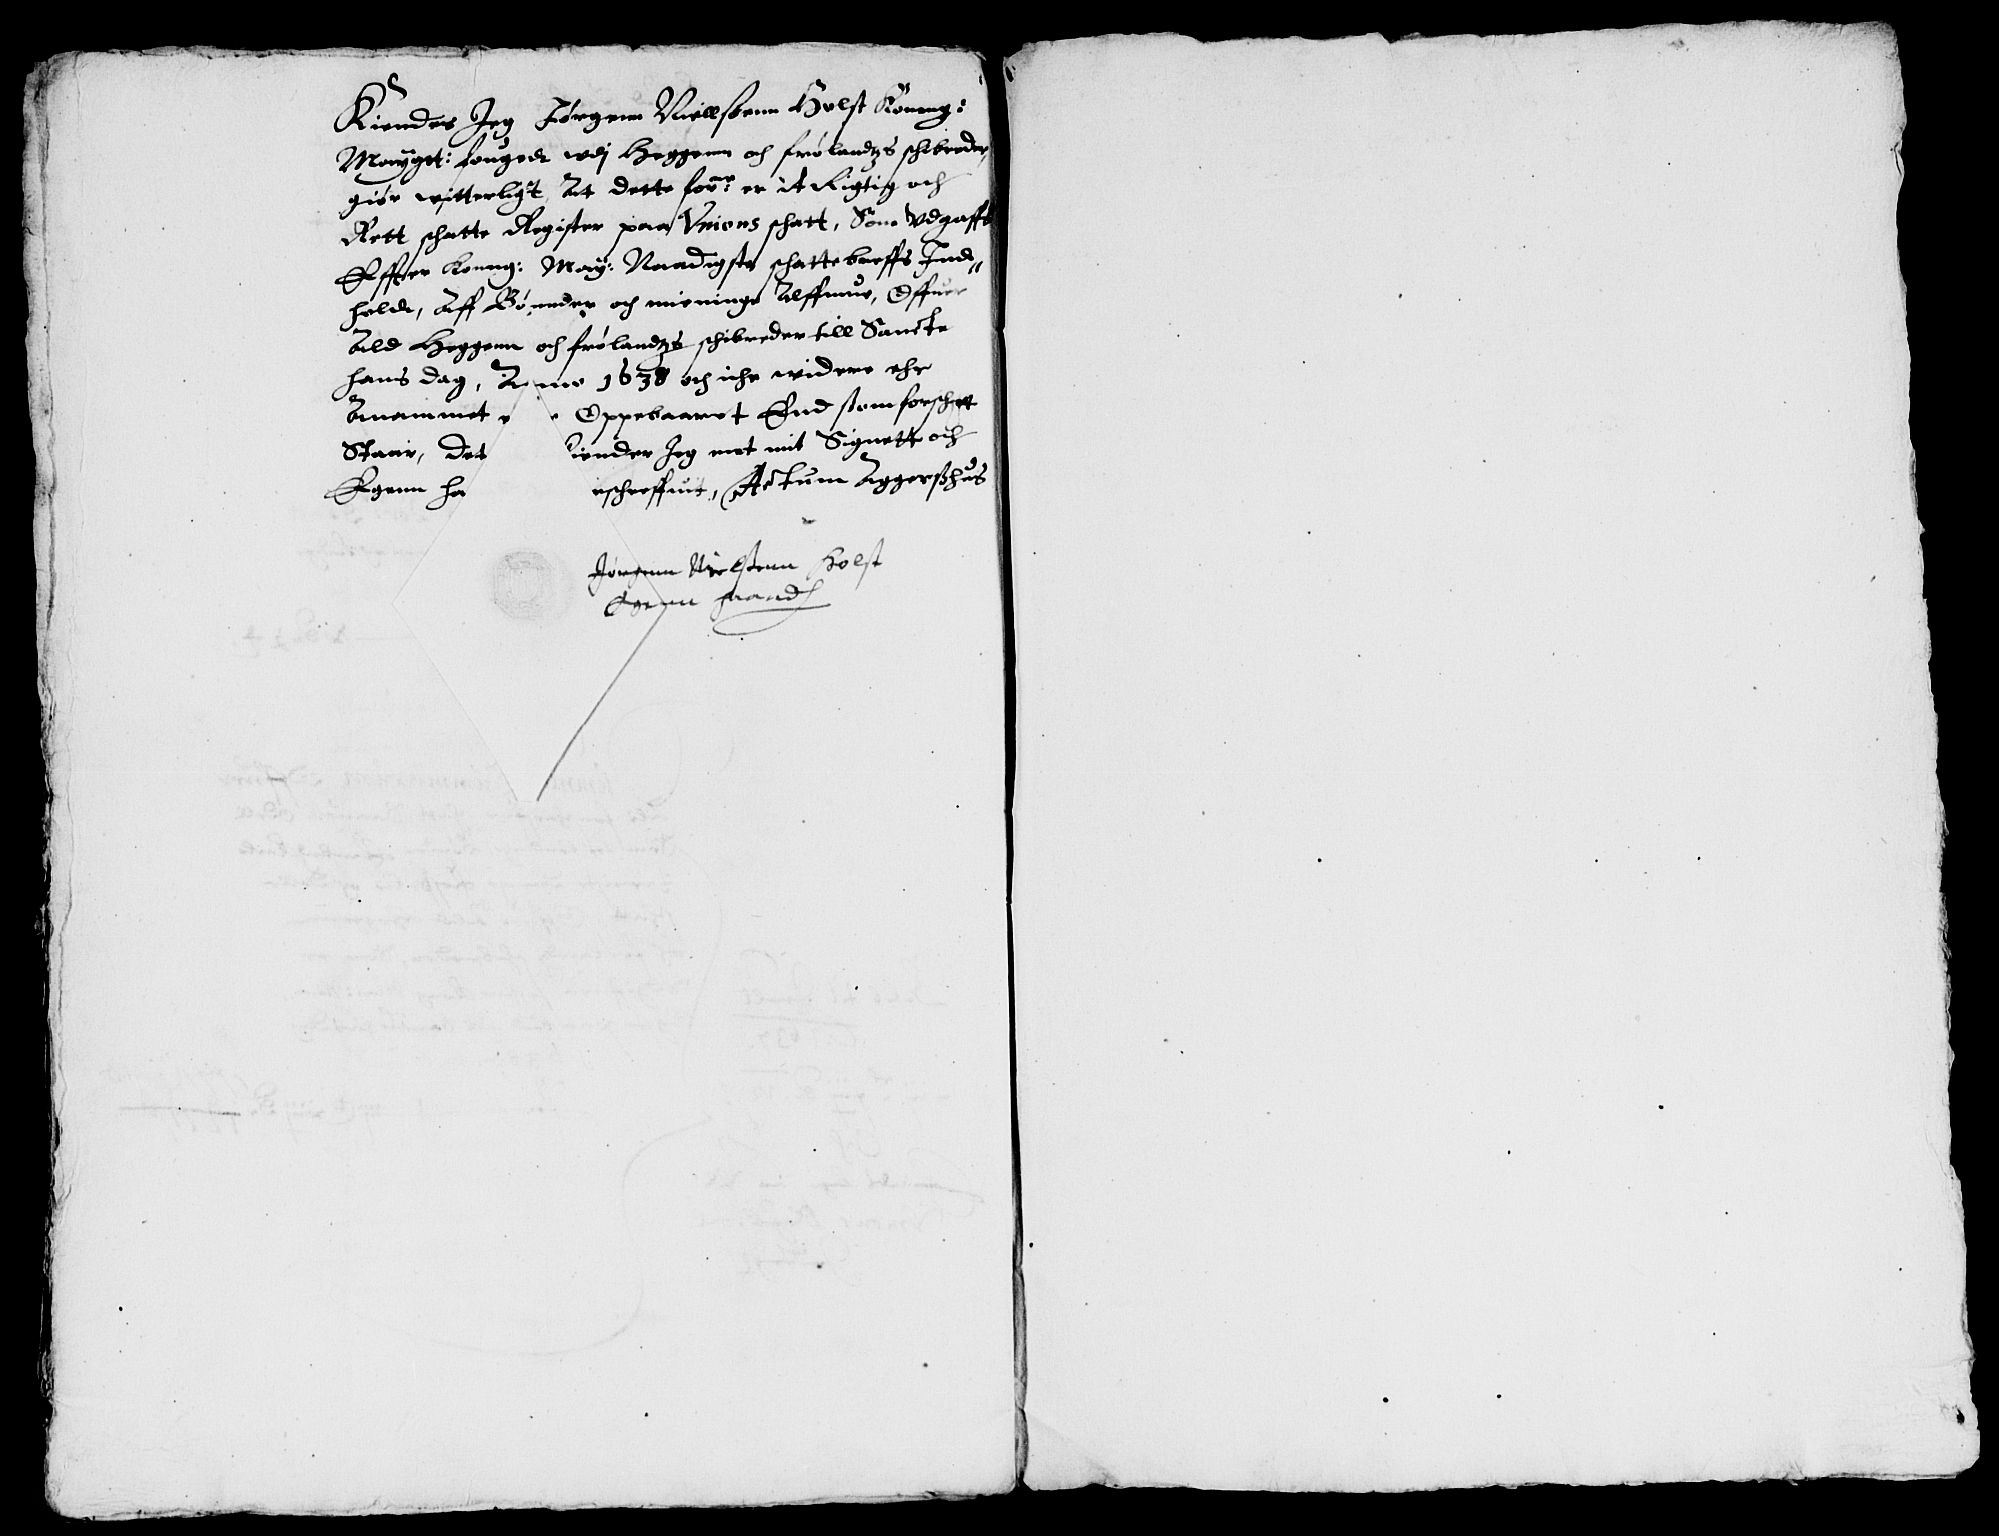 Kiendes Jeg Jørgenn Niellßenn Holst Konng:
Mayget: fougedt wdj Heggenn och frølandtzs schibreder,
giør witterligt At dette forne: er it Rigtig och
Rett schatte Register paa Unions schatt, Som Udgaffs
Effter Konng: May: Naadigste schattebreffs Ind„
hold, Aff Bønnder och menninge Alffmue, Offuer
Ald Heggenn och frølandtzs schibreder till Sancte
hans dag, Anno 1638 och iche widere ehr
Anammet e Oppebaaret End ßom forschrett
Staar, Det iender Jeg met mit Signette och
Egenn ha rschreffuit, Actum Aggerßhus
Jørgenn Nielßenn Holst
Egenn Haand